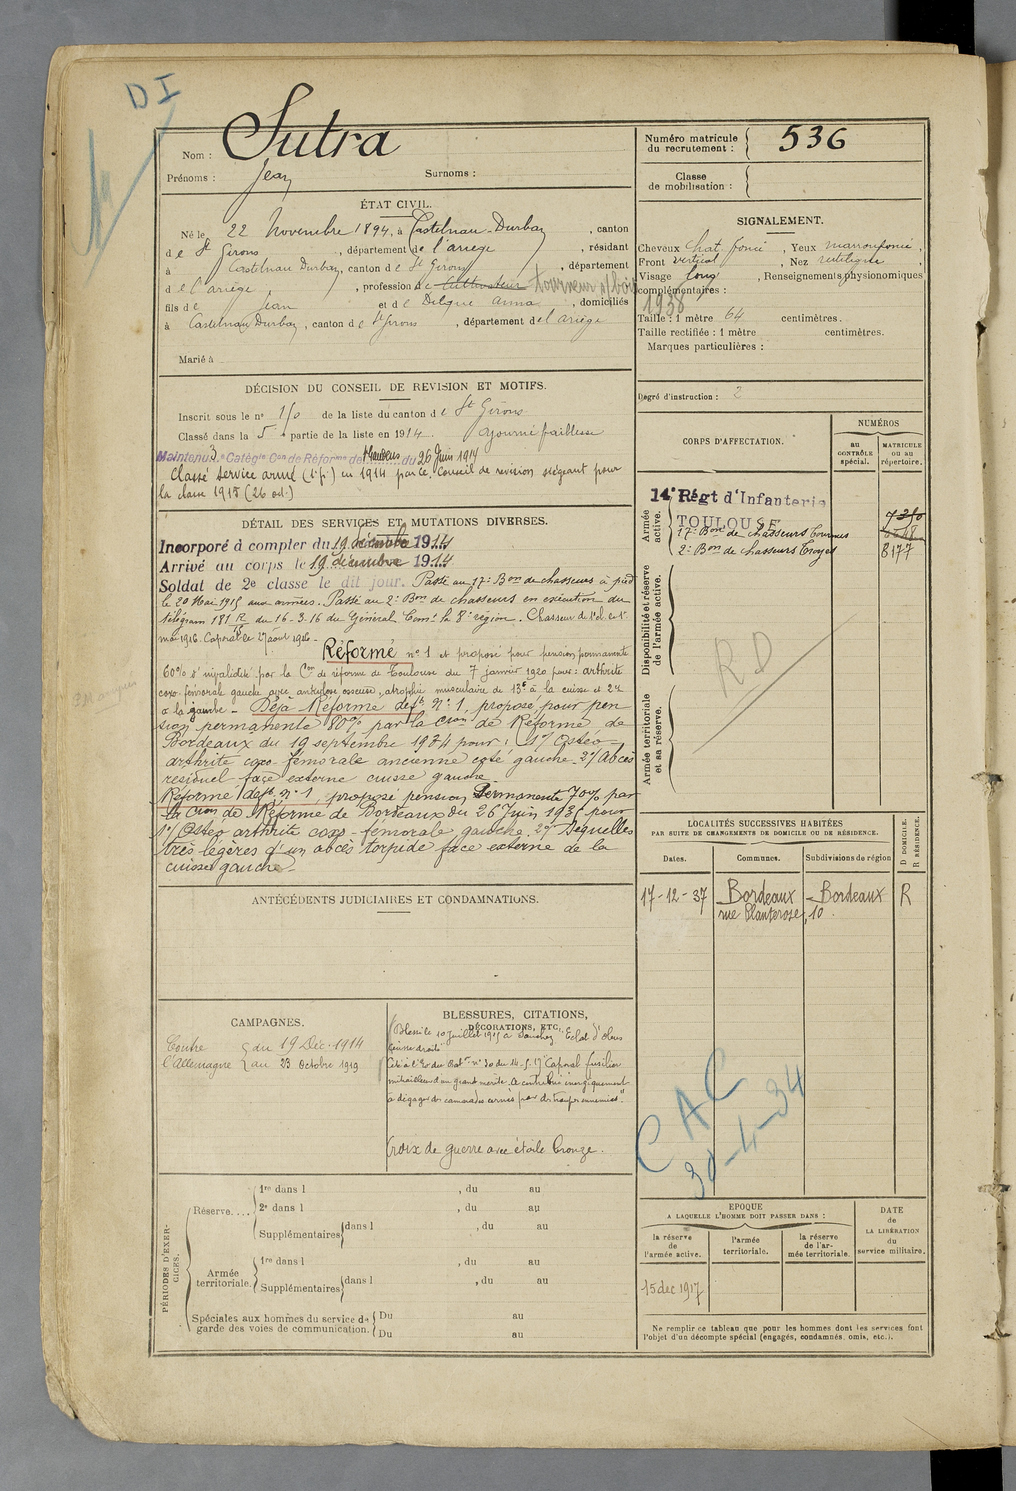 D I
Nom : Sutra
Prénoms : Jean Surnoms :
Numéro matricule du recrutement : 536
Classe de mobilisation :
ÉTAT CIVIL.
Né le 22 Novembre 1894, à Castelnau-Durban, canton
de St Girons, département de l'ariège, résidant
à Castelnau Durban, canton de St Girons, département
de l'ariège, profession de Cultivateur tourneur s/bois
fils de Jean et de Delque anna, domiciliés
à Castelnau Durban, canton de St Girons, département de l'ariège
Marié à
SIGNALEMENT.
Cheveux chat. foncé, Yeux marronfoncé,
Front vertical, Nez rectiligne,
Visage long, Renseignements physionomiques
complémentaires :
1938
Taille : 1 mètre 64 centimètres.
Taille rectifiée : 1 mètre centimètres.
Marques particulières :
Degré d'instruction : 2
DÉCISION DU CONSEIL DE REVISION ET MOTIFS.
Inscrit sous le n° 150 de la liste du canton de St Girons
Classé dans la 5e partie de la liste en 1914. Ajourné faiblesse
Maintenu 3e Catégie Con de Réforme de du 26 Juin 1917
Classé service armé (1e p.) en 1914 par le Conseil de revision siégeant pour
la classe 1915 (26 oct.)
DÉTAIL DES SERVICES ET MUTATIONS DIVERSES.
Incorporé à compter du 19 décembre 1914
Arrivé au corps le 19 décembre 1914
Soldat de 2e classe le dit jour. Passé au 17e Bon de chasseurs à pied
le 20 Mai 1915 aux armées. Passé au 2e Bon de chasseurs en exécution du
télégram 181 R/ du 16-3.16 du Général Comt la 8e région. Chasseur de 1e cl. le 1er
mai 1916. Caporal le 27 aout 1916.-
Réformé n° 1 et proposé pour pension permanente
60% d'invalidité par la Con de réforme de Toulouse du 7 janvier 1920 pour : arthrite
coxo-fémorale gauche avec ankylose osseuse, atrophie musculaire de 13c à la cuisse et 2c
à la gauche - Déjà Réformé deft n° 1, proposé pour pen
sion permanente 80% par la Cion de Réforme de
Bordeaux du 19 septembre 1934 pour : 1°/ Ostéo-
arthrite coxo-fémorale ancienne coté gauche. 2°/ Abcès
résiduel face externe cuisse gauche.
Réformé deft n° 1, proposé pension Permanente 70% par
la Cion de Réforme de Bordeaux du 26 Juin 1935 pour
1°/ Ostéo arthrite coxo-fémorale gauche. 2°/ Sequelles
très légères d'un abcès torpide face externe de la
cuisse gauche.
CORPS D'AFFECTATION.
NUMÉROS
au CONTRÔLE spécial.
MATRICULE ou au répertoire.
Armée active.
14e Régt d'Infanterie
TOULOUSE
17e Bon de chasseurs
2e Bon de chasseurs Troyes
8177
Disponibilité et réserve de l'armée active.
R D
Armée territoriale et sa réserve.
LOCALITÉS SUCCESSIVES HABITÉES
PAR SUITE DE CHANGEMENTS DE DOMICILE OU DE RÉSIDENCE.
D DOMICILE. R RÉSIDENCE.
Dates. Communes. Subdivisions de région
17-12-37 Bordeaux Bordeaux R
rue Planterose, 10
ANTÉCÉDENTS JUDICIAIRES ET CONDAMNATIONS.
CAMPAGNES.
Contre du 19 Déc. 1914
l'Allemagne au 23 octobre 1919
BLESSURES, CITATIONS,
DÉCORATIONS, ETC.
Blessé le 10 juillet 1915 à Souchez "Eclat d'obus
cuisse droite"
Cité à l'O. du Bat. n° 30 du 14-5-17 "Caporal fusilier
mitrailleur d'un grand mérite. A contribué énergiquement
à dégager des camarades cernés par des troupes ennemies".
Croix de guerre avec étoile bronze.
C A C
30-4-34
PÉRIODES D'EXERCICES.
Réserve....
1re dans l , du au
2e dans l , du au
Supplémentaires dans l , du au
Armée territoriale.
1re dans l , du au
Supplémentaires dans l , du au
Spéciales aux hommes du service de garde des voies de communication.
Du au
Du au
EPOQUE
A LAQUELLE L'HOMME DOIT PASSER DANS :
la réserve de l'armée active.
l'armée territoriale.
la réserve de l'armée territoriale.
DATE de LA LIBÉRATION du service militaire.
15 dec 1917
Ne remplir ce tableau que pour les hommes dont les services font
l'objet d'un décompte spécial (engagés, condamnés, omis, etc.).